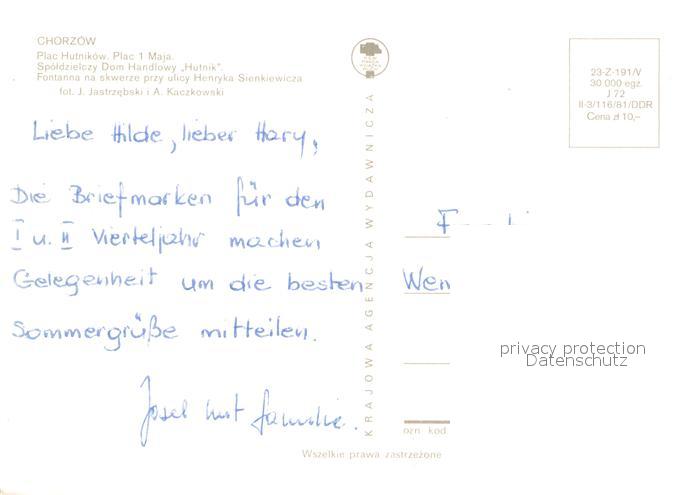 CHORZÓW
Plac Hutników. Plac 1 Maja.
Spółdzielczy Dom Handlowy „Hutnik".
Fontanna na skwerze przy ulicy Henryka Sienkiewicza
fot. J. Jastrzębski i A. Kaczkowski
23-Z-191/V
30.000 egz.
J 72
II-3/116/81/DDR
Cena zł 10,–
Liebe Hilde, lieber Hary,
Die Briefmarken für den
I u. II Vierteljahr machen
Gelegenheit um die besten
Sommergrüße mitteilen.
Josef mit Familie.
KRAJOWA AGENCJA WYDAWNICZA
F
Wen
privacy protection
Datenschutz
ozn kod
Wszelkie prawa zastrzeżone